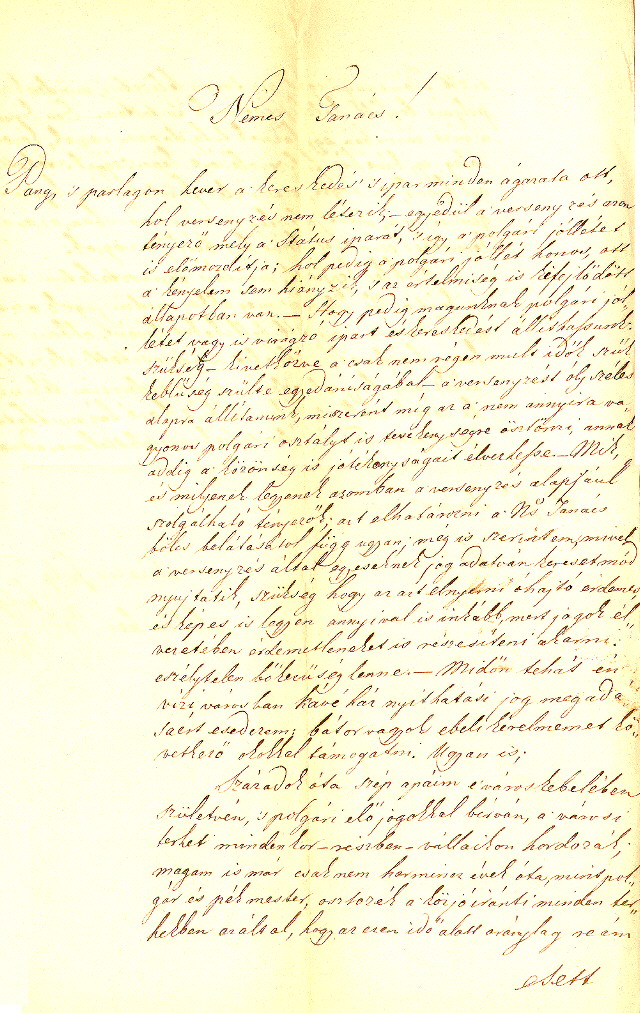 Nemes Tanács!
Pang, s parlagon hever a kereskedés s ipar minden ágazata ott,
hol versenyzés nem létezik; – egyedül a versenyzés azon
tényező mely a Státus iparát, s így a polgári jóllétet
is előmozdítja; hol pedig a polgári jóllét honos, ott
a kényelem sem hiányzik, s az értelmiség is kifejlődött
állapotban van. – Hogy pedig magunknak polgári jól¬
létet vagy is virágzó ipart és kereskedést állithassunk:
szükség – kivetkőzve a csak nem régen mult idők szük
keblüség szülte egyedáruságából – a versenyzést oly széles
alapra állitanunk, miszerént míg az a nem annyira va¬
gyonos polgári osztályt is tevékenységre ösztönzi, annak
addig a közönség is jótékonyságait élvezhesse. – Mik,
és milyenek legyenek azomban a versenyzés alapjául
szolgálható tényezők: azt elhatározni a Ns Tanács
bölcs belátásától függ ugyan; még is szerintem, mivel
a versenyzés által egyeseknek jog adatván kereset mód
nyujtatik, szükség hogy az azt elnyerni óhajtó érdemes,
és képes is legyen annyival is inkább, mert jogok él¬
vezetében érdemetleneket is részesíteni akarni:
eszélytelen bőkezüség lenne. – Midőn tehát én
vizi városban kávé ház nyithatási jog megadá¬
sáért esedezem; bátor vagyok ebeli kérelmemet kö¬
vetkező okokkal támogatni. Ugyan is;
Századok óta szép apáim e város kebelében
születvén, s polgári elő jogokkal bírván, a városi
terhet mindenkor – részben – vállaikon hordozák;
magam is már csaknem harmincz évek óta, mint pol¬
gár és pék mester, osztozék a közjó iránti minden ter¬
hekben azáltal, hogy az ezen idő alatt aránylag reám
esett